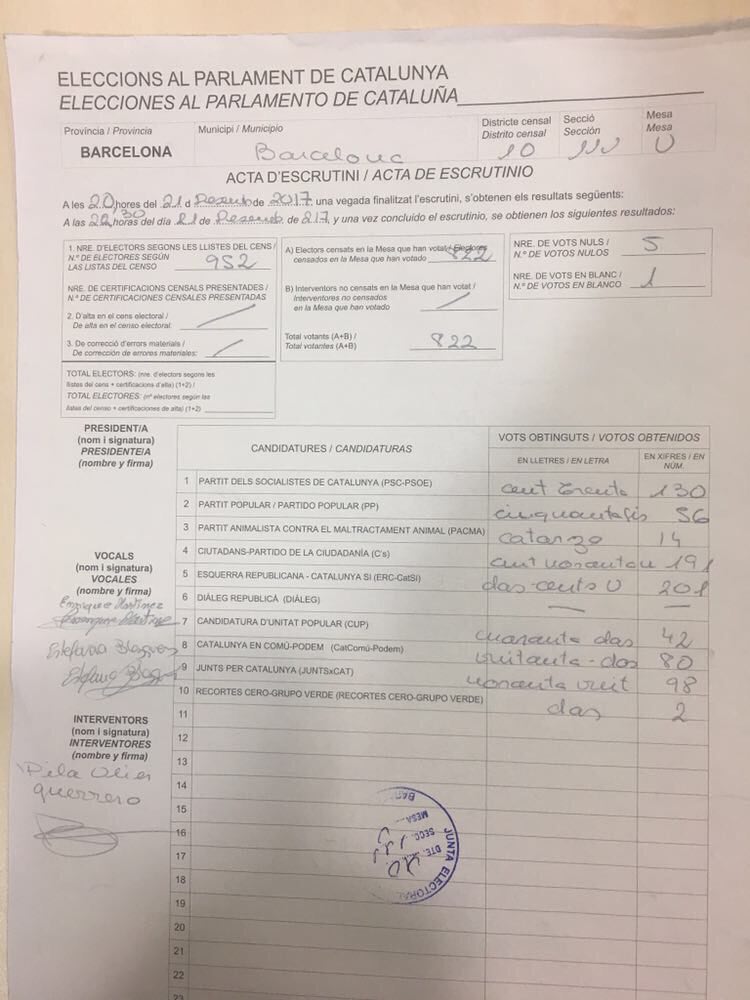 ELECCIONS AL PARLAMENT DE CATALUNYA
ELECCIONES AL PARLAMENTO DE CATALUÑA
Província / Provincia
BARCELONA
Municipi / Municipio
Barcelona
Districte censal
Distrito censal
10
Secció
Sección
111
Mesa
Mesa
U
ACTA D'ESCRUTINI / ACTA DE ESCRUTINIO
A les 20 hores del 21 d de 2017, una vegada finalitzat l'escrutini, s'obtenen els resultats següents:
A las 22,30 horas del día 21 de de 217, y una vez concluido el escrutinio, se obtienen los siguientes resultados:
1. NRE. D'ELECTORS SEGONS LES LLISTES DEL CENS /
N.º DE ELECTORES SEGÚN
LAS LISTAS DEL CENSO 952
NRE. DE CERTIFICACIONS CENSALS PRESENTADES /
N.º DE CERTIFICACIONES CENSALES PRESENTADAS
2. D'alta en el cens electoral /
De alta en el censo electoral:
3. De correcció d'errors materials /
De corrección de errores materiales:
TOTAL ELECTORS: (nre. d'electors segons les
llistes del cens + certificacions d'alta) (1+2) /
TOTAL ELECTORES: (nº electores según las
listas del censo + certificaciones de alta) (1+2)
A) Electors censats en la Mesa que han votat / Electores
censados en la Mesa que han votado 822
B) Interventors no censats en la Mesa que han votat /
Interventores no censados
en la Mesa que han votado
Total votants (A+B) /
Total votantes (A+B) 822
NRE. DE VOTS NULS /
N.º DE VOTOS NULOS 5
NRE. DE VOTS EN BLANC /
N.º DE VOTOS EN BLANCO 1
PRESIDENT/A
(nom i signatura)
PRESIDENTE/A
(nombre y firma)
VOCALS
(nom i signatura)
VOCALES
(nombre y firma)
Enrique Martinez
INTERVENTORS
(nom i signatura)
INTERVENTORES
(nombre y firma)
guerrero
CANDIDATURES / CANDIDATURAS
VOTS OBTINGUTS / VOTOS OBTENIDOS
EN LLETRES / EN LETRA
EN XIFRES / EN NÚM.
1 PARTIT DELS SOCIALISTES DE CATALUNYA (PSC-PSOE) cent trenta 130
2 PARTIT POPULAR / PARTIDO POPULAR (PP) cinquantasis 56
3 PARTIT ANIMALISTA CONTRA EL MALTRACTAMENT ANIMAL (PACMA) catorze 14
4 CIUTADANS-PARTIDO DE LA CIUDADANÍA (C's) 191
5 ESQUERRA REPUBLICANA - CATALUNYA SÍ (ERC-CatSí) das-cents U 201
6 DIÀLEG REPUBLICÀ (DIÀLEG) — —
7 CANDIDATURA D'UNITAT POPULAR (CUP) cuaranta das 42
8 CATALUNYA EN COMÚ-PODEM (CatComú-Podem) vuitanta-das 80
9 JUNTS PER CATALUNYA (JUNTSxCAT) noranta vuit 98
10 RECORTES CERO-GRUPO VERDE (RECORTES CERO-GRUPO VERDE) das 2
11
12
13
14
15
16
17
18
19
20
21
22
23
JUNTA ELECTORAL
DTE. 10
SECC. 111
MESA U